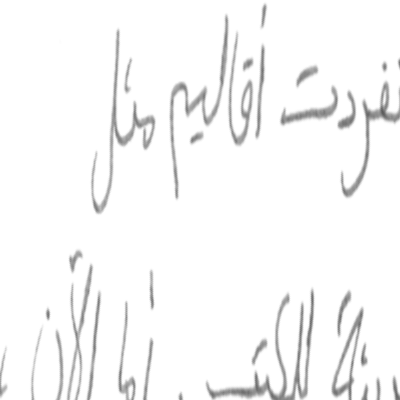 نفردت أقاليم مثل
للكتب. أما الآن